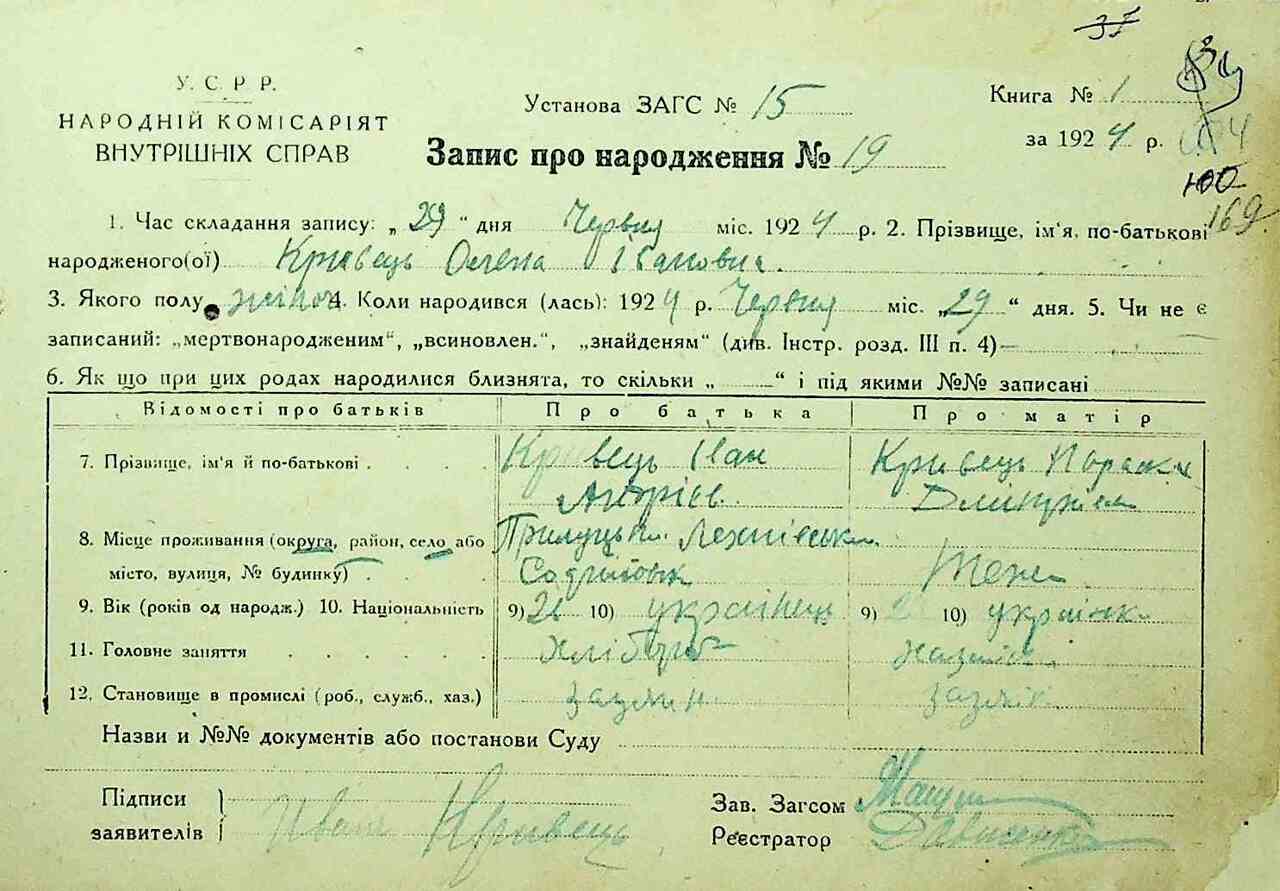 У. С. Р. Р.
НАРОДНІЙ КОМІСАРІЯТ
ВНУТРІШНІХ СПРАВ
Установа ЗАГС № 15
Запис про народження № 19
Книга № 1
за 1924 р.
37
100
169
1. Час складання запису: „29" дня Червня міс. 1924 р. 2. Прізвище, ім'я, по-батькові
народженого(ої) Кривець Олена Івановна.
3. Якого полу жіноч 4. Коли народився (лась): 1924 р. Червня міс. „29" дня. 5. Чи не є
записаний: „мертвонародженим", „всиновлен.", „знайденям" (див. Інстр. розд. III п. 4)—
6. Як що при цих родах народилися близнята, то скільки „——" і під якими №№ записані
Відомості про батьків Про батька Про матір
7. Прізвище, ім'я й по-батькові . . . . Кривець Іван Кривець Параски
Андрієв Дмитрієв
8. Місце проживання (округа, район, село або Прилуцьк.
місто, вулиця, № будинку) . . . . Теж
9. Вік (років од народж.) 10. Національність 9) 10) українець 9) 10) українк
11. Головне заняття . . . . . . Хлібороб
12. Становище в промислі (роб., служб., хаз.)
Назви и №№ документів або постанови Суду
Підписи
заявителів Иван Кривець
Зав. Загсом
Реєстратор